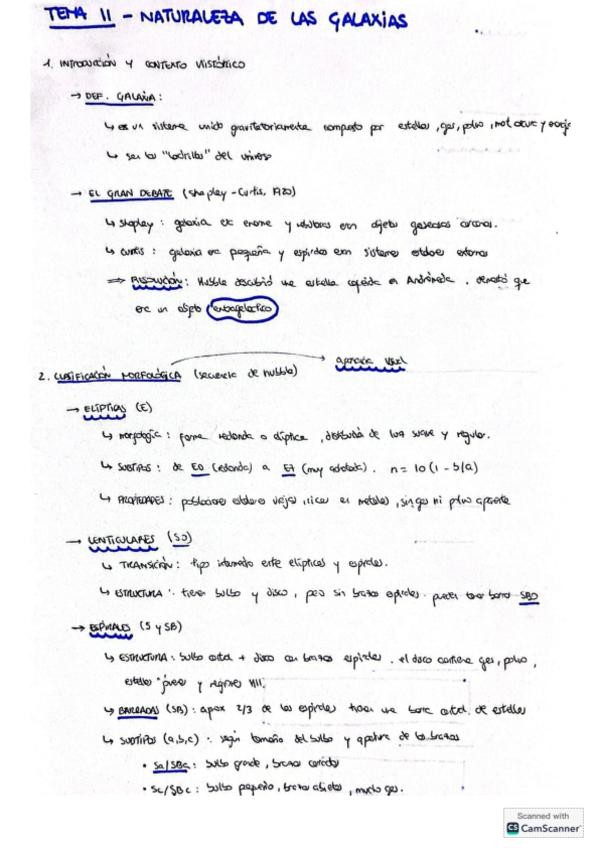 TEMA 11 - NATURALEZA DE LAS GALAXIAS
1. INTRODUCCIÓN Y CONTEXTO HISTÓRICO
→ DEF. GALAXIA:
↳ es un sistema unido gravitatoriamente compuesto por estrellas, gas, polvo, mat oscura y energía
↳ son los "ladrillos" del universo
→ EL GRAN DEBATE (Shapley - Curtis, 1920)
↳ Shapley: galaxia era enorme y nebulosas eran objetos gaseosos cercanos.
↳ Curtis: galaxia era pequeña y espirales eran sistemas estelares externos
⇒ RESOLUCIÓN: Hubble descubrió una estrella cefeida en Andrómeda. demostró que
era un objeto extragaláctico
2. CLASIFICACIÓN MORFOLÓGICA (secuencia de Hubble) → apariencia visual
→ ELÍPTICAS (E)
↳ Morfología: forma redonda o elíptica, distribución de luz suave y regular.
↳ SUBTIPOS: de E0 (redonda) a E7 (muy achatada). n = 10(1 - b/a)
↳ PROPIEDADES: poblaciones estelares viejas, ricas en metales, sin gas ni polvo aparente
→ LENTICULARES (S0)
↳ TRANSICIÓN: tipo intermedio entre elípticas y espirales.
↳ ESTRUCTURA: tienen bulbo y disco, pero sin brazos espirales. pueden tener barras SB0
→ ESPIRALES (S y SB)
↳ ESTRUCTURA: bulbo central + disco con brazos espirales. el disco contiene gas, polvo,
estrellas jóvenes y regiones HII.
↳ BARRADAS (SB): aprox 2/3 de las espirales tienen una barra central de estrellas
↳ SUBTIPOS (a,b,c): según tamaño del bulbo y apertura de los brazos
• Sa/SBa: bulbo grande, brazos cerrados
• Sc/SBc: bulbo pequeño, brazos abiertos, mucho gas.
Scanned with
CS CamScanner